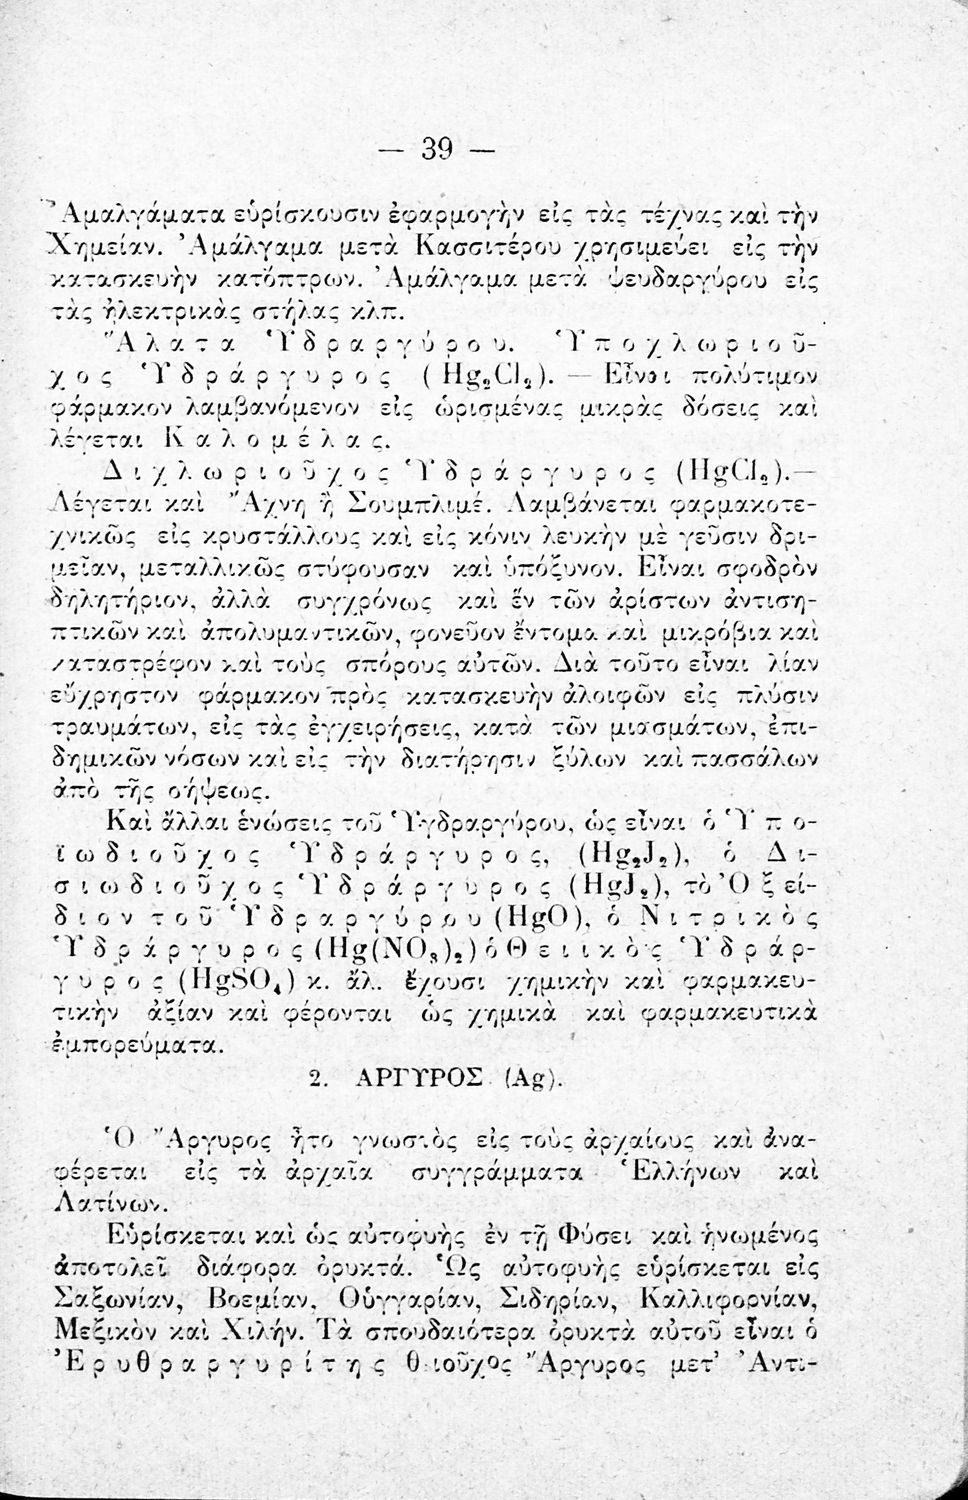 — 39 —
Ἀμαλγάματα εὑρίσκουσιν ἐφαρμογὴν εἰς τὰς τέχνας καὶ τὴν
Χημείαν. Ἀμάλγαμα μετὰ Κασσιτέρου χρησιμεύει εἰς τὴν
κατασκευὴν κατόπτρων. Ἀμάλγαμα μετὰ ψευδαργύρου εἰς
τὰς ἠλεκτρικὰς στήλας κλπ.
Ἅλατα Ὑδραργύρου. Ὑποχλωριοῦ-
χος Ὑδράργυρος (Hg₂Cl₂). — Εἶναι πολύτιμον
φάρμακον λαμβανόμενον εἰς ὡρισμένας μικρὰς δόσεις καὶ
λέγεται Καλομέλας.
Διχλωριοῦχος Ὑδράργυρος (HgCl₂).—
Λέγεται καὶ Ἄχνη ἢ Σουμπλιμέ. Λαμβάνεται φαρμακοτε-
χνικῶς εἰς κρυστάλλους καὶ εἰς κόνιν λευκὴν μὲ γεῦσιν δρι-
μεῖαν, μεταλλικῶς στύφουσαν καὶ ὑπόξυνον. Εἶναι σφοδρὸν
δηλητήριον, ἀλλὰ συγχρόνως καὶ ἓν τῶν ἀρίστων ἀντιση-
πτικῶν καὶ ἀπολυμαντικῶν, φονεῦον ἔντομα καὶ μικρόβια καὶ
καταστρέφον καὶ τοὺς σπόρους αὐτῶν. Διὰ τοῦτο εἶναι λίαν
εὔχρηστον φάρμακον πρὸς κατασκευὴν ἀλοιφῶν εἰς πλύσιν
τραυμάτων, εἰς τὰς ἐγχειρήσεις, κατὰ τῶν μιασμάτων, ἐπι-
δημικῶν νόσων καὶ εἰς τὴν διατήρησιν ξύλων καὶ πασσάλων
ἀπὸ τῆς σήψεως.
Καὶ ἄλλαι ἑνώσεις τοῦ Ὑγδραργύρου, ὡς εἶναι ὁ Ὑπο-
ϊωδιοῦχος Ὑδράργυρος, (Hg₂J₂), ὁ Δι-
σιωδιοῦχος Ὑδράργυρος (HgJ₂), τὸ Ὀξεί-
διον τοῦ Ὑδραργύρου (HgO), ὁ Νιτρικὸς
Ὑδράργυρος (Hg(NO₃)₂) ὁ Θειικὸς Ὑδράρ-
γυρος (HgSO₄) κ. ἄλ. ἔχουσι χημικὴν καὶ φαρμακευ-
τικὴν ἀξίαν καὶ φέρονται ὡς χημικὰ καὶ φαρμακευτικὰ
ἐμπορεύματα.
2. ΑΡΓΥΡΟΣ (Ag).
Ὁ Ἄργυρος ἦτο γνωστὸς εἰς τοὺς ἀρχαίους καὶ ἀνα-
φέρεται εἰς τὰ ἀρχαῖα συγγράμματα Ἑλλήνων καὶ
Λατίνων.
Εὑρίσκεται καὶ ὡς αὐτοφυὴς ἐν τῇ Φύσει καὶ ἡνωμένος
ἀποτολεῖ διάφορα ὀρυκτά. Ὡς αὐτοφυὴς εὑρίσκεται εἰς
Σαξωνίαν, Βοεμίαν, Οὑγγαρίαν, Σιδηρίαν, Καλλιφορνίαν,
Μεξικὸν καὶ Χιλήν. Τὰ σπουδαιότερα ὀρυκτὰ αὐτοῦ εἶναι ὁ
Ἐρυθραργυρίτης θειοῦχος Ἄργυρος μετ' Ἀντι-